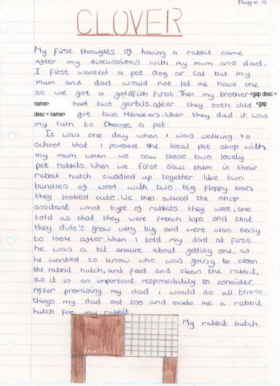 CLOVER
My first thoughts of having a rabbit came
after my discussions with my mum and dad.
I first wanted a pet dog or cat but my
mum and dad would not let me have one
so we got a goldfish first. Then my brother <gap desc =
name> had two gerbils, after they both died <gap
desc = name> got two Hamsters. When they died it was
my turn to choose a pet.
It was one day when I was walking to
school that I passed the local pet shop with
my mum when we saw these two lovely
pet rabbits. When we first saw them in their
rabbit hutch cuddled up together like two
bundles of wool with two big floppy ears
they looked cute. We then asked the shop
assistant what type of rabbits they were, she
told us that they were French lops and that
they didn't grow very big and were also easy
to look after. When I told my dad at first
he was a bit unsure about getting one, as
he wanted to know who was going to clean
the rabbit hutch and feed and clean the rabbit,
as it is an important responsibility to consider.
After promising my dad I would do all these
things my dad set too and made me a rabbit
hutch for my rabbit.
My rabbit hutch.